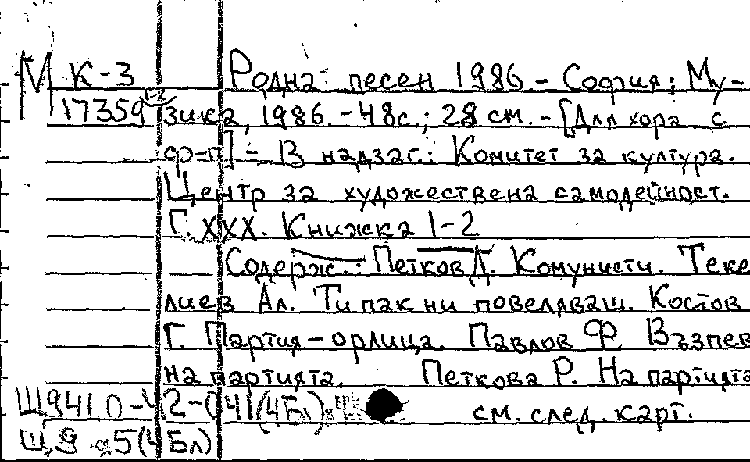 М К-3 Родна песен 1986 - София: Му-
17359 1-2 зика, 1986. - 48с.; 28 см. - [Для хора с
ф-п] - В надзаг.: Комитет за култура.
Център за художествена самодейност.
Г. XXX. Книжка 1-2
Содерж.: Петков Д. Комунисти. Теке
лиев Ал. Ти пак ни повеляваш. Костов
Г. Партия-орлица. Павлов Ф Възпев
на партията. Петкова Р. На партията
Щ941.0-42-041(4Бл) см. след. карт.
Щ9 5(4Бл)